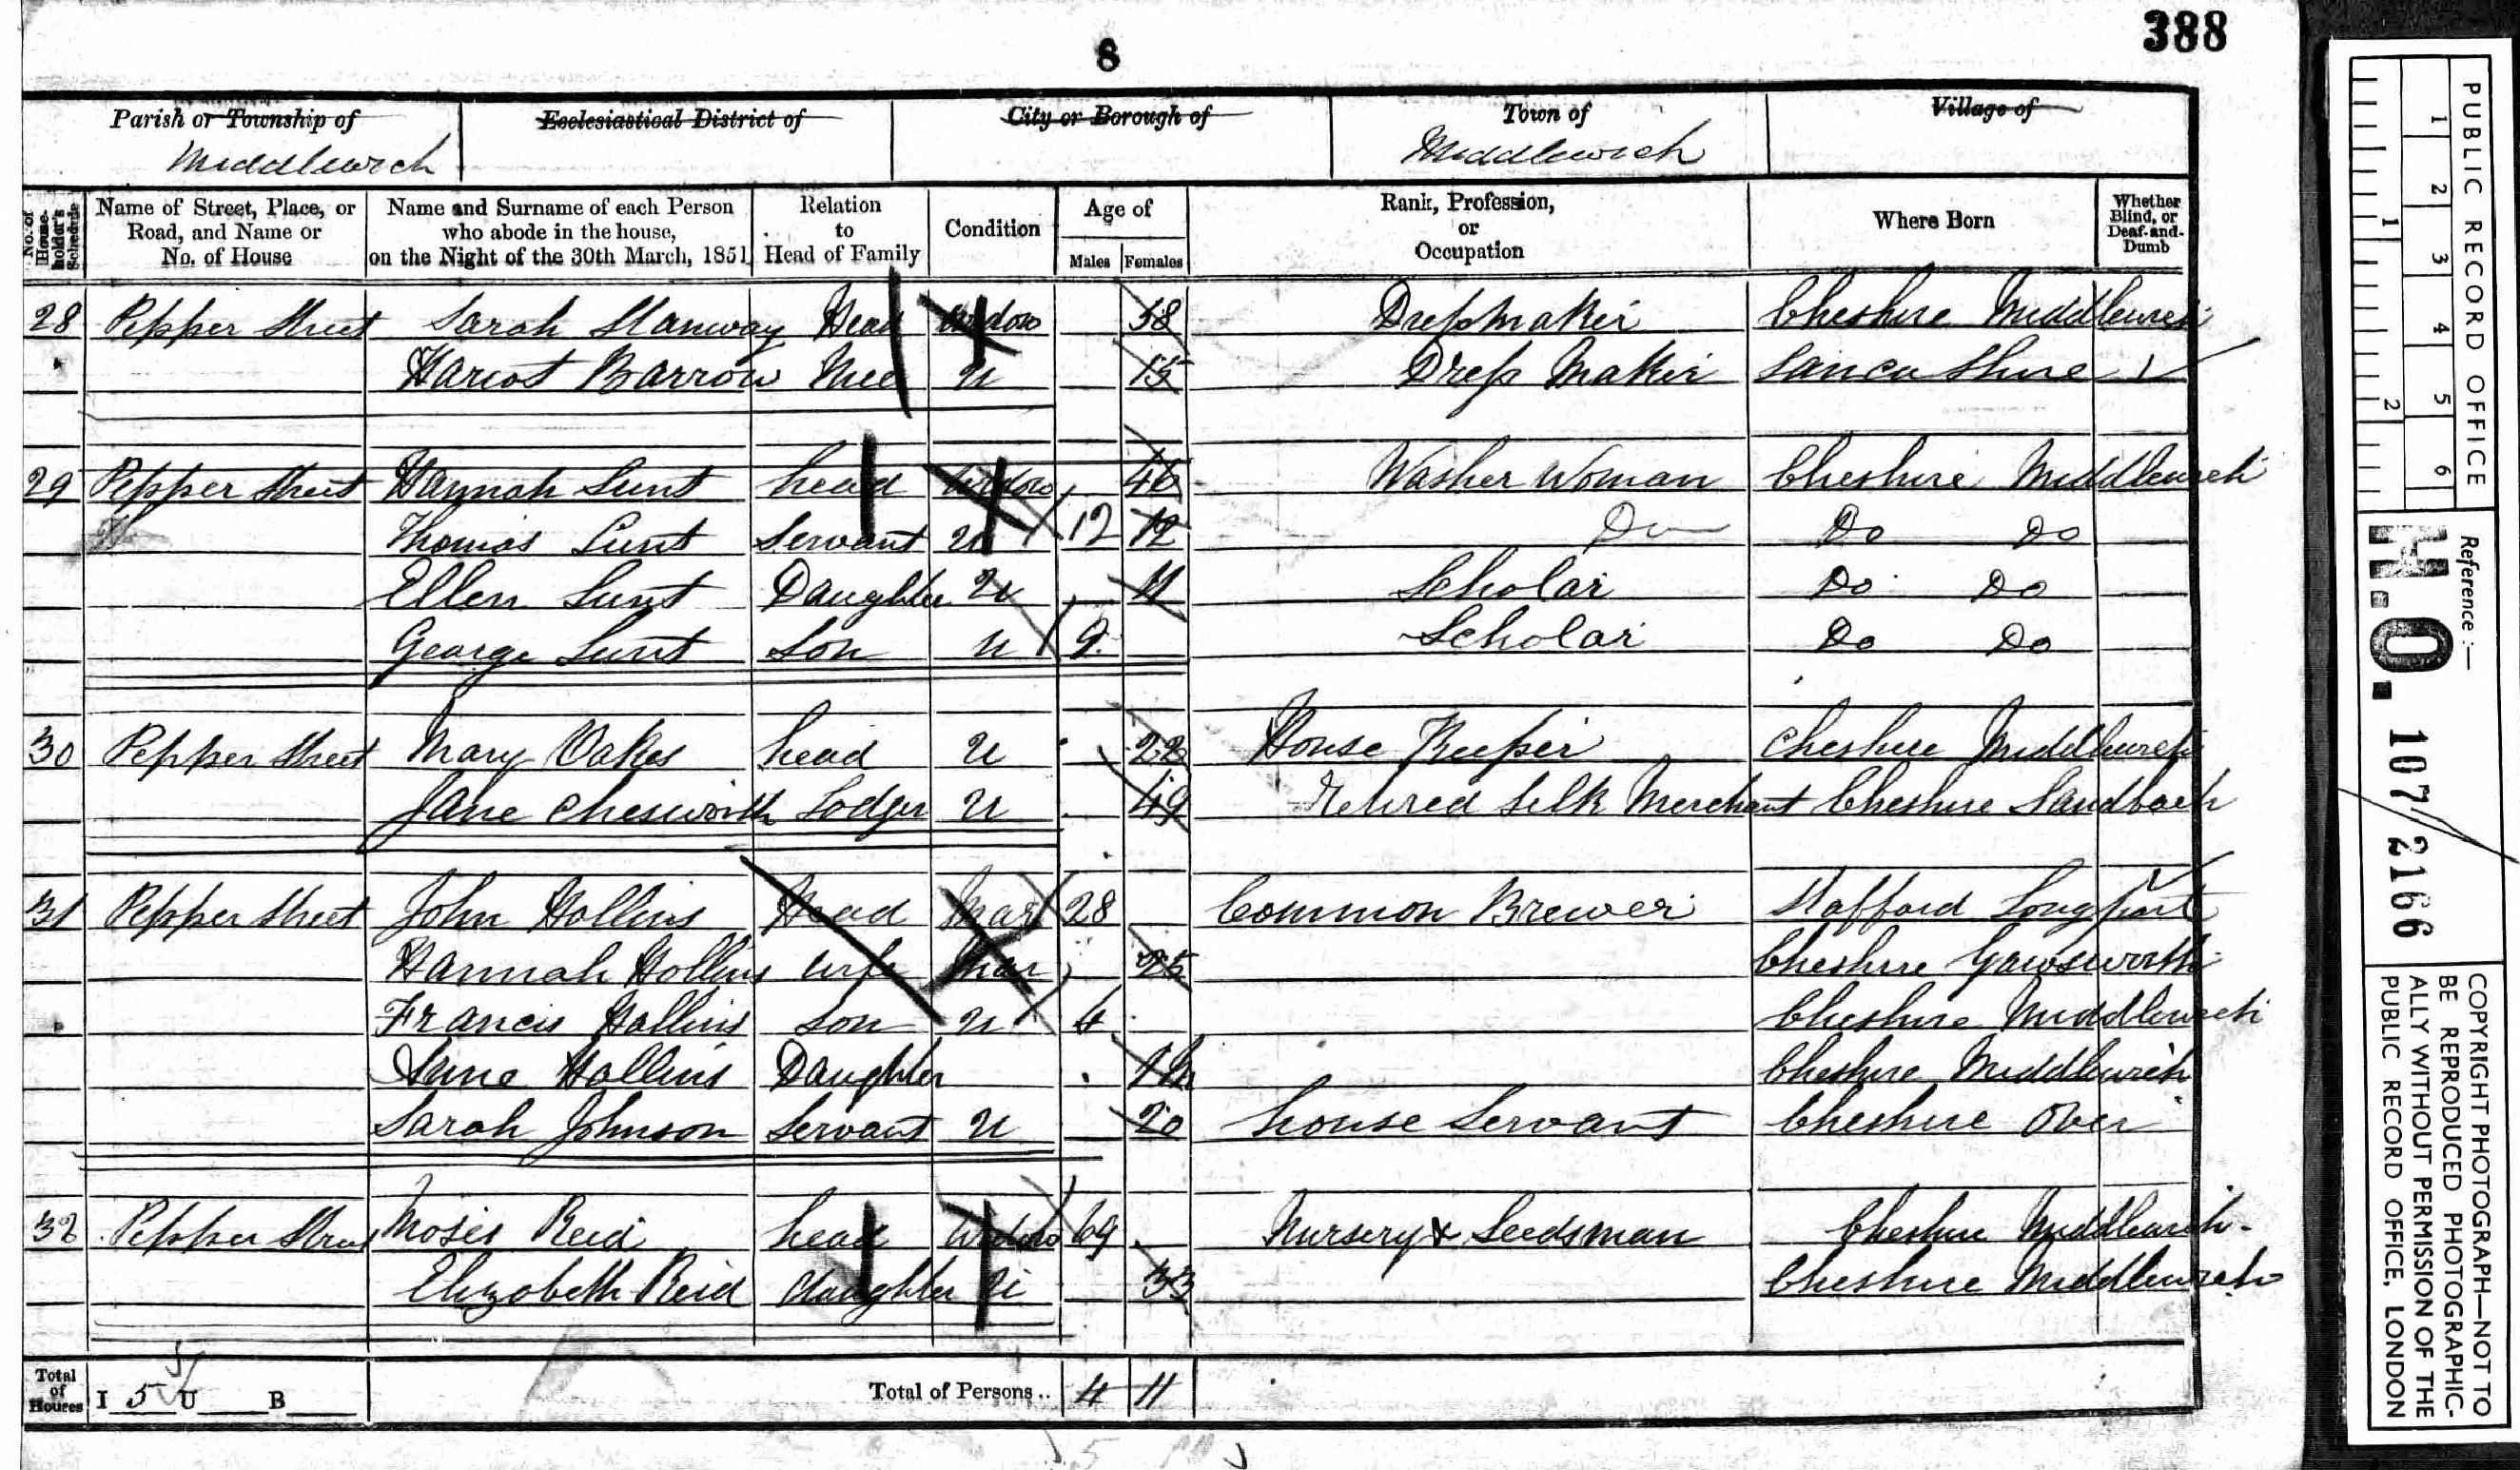 388
8
Parish or Township of Ecclesiastical District of City or Borough of Town of Village of
Middlewich Middlewich
No. of House-holder's Schedule Name of Street, Place, or Road, and Name or No. of House Name and Surname of each Person who abode in the house, on the Night of the 30th March, 1851 Relation to Head of Family Condition Age of Males Females Rank, Profession, or Occupation Where Born Whether Blind, or Deaf-and-Dumb
28 Pepper Street Sarah Stanway Head Widow 58 Dressmaker Cheshire Middlewich
Hariot Barrow U 15 Dress Maker Lancashire
29 Pepper Street Hannah Lunt head Widow 46 Washer Woman Cheshire Middlewich
Thomas Lunt Servant U 12 12 Do Do Do
Ellen Lunt Daughter U 11 Scholar Do Do
George Lunt Son U 9 Scholar Do Do
30 Pepper Street Mary Oakes head U 22 House Keeper Cheshire Middlewich
Jane Chesworth Lodger U 49 Retired Silk Merchant Cheshire Sandbach
31 Pepper Street John Hollins Head Mar 28 Common Brewer Stafford Longport
Hannah Hollins Wife Mar 25 Cheshire Gawsworth
Francis Hollins Son U 4 Cheshire Middlewich
Hollins Daughter Cheshire Middlewich
Sarah Johnson Servant U 20 house Servant Cheshire Over
32 Pepper Street Moses Reid head Widow 69 Nursery & Seedsman Cheshire Middlewich
Elizabeth Reid daughter U 33 Cheshire Middlewich
Total of Houses I 5 U B Total of Persons.. 4 11
PUBLIC RECORD OFFICE
1 2 3 4 5 6
1 2
Reference :—
H.O. 107/2166
COPYRIGHT PHOTOGRAPH—NOT TO
BE REPRODUCED PHOTOGRAPHIC-
ALLY WITHOUT PERMISSION OF THE
PUBLIC RECORD OFFICE, LONDON